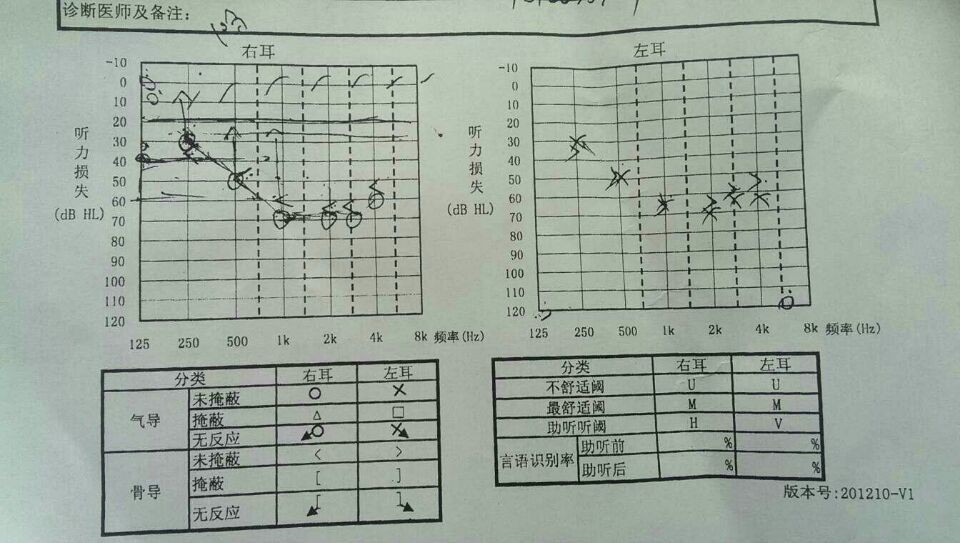 诊断医师及备注:
右耳
左耳
-10
0
10
20
30
40
50
60
70
80
90
100
110
120
听力损失
(dB HL)
125 250 500 1k 2k 4k 8k 频率(Hz)
-10
0
10
20
30
40
50
60
70
80
90
100
110
120
听力损失
(dB HL)
125 250 500 1k 2k 4k 8k 频率(Hz)
分类 右耳 左耳
气导 未掩蔽 O ×
掩蔽 △ □
无反应 O ×
骨导 未掩蔽 < >
掩蔽 [ ]
无反应 [ ]
分类 右耳 左耳
不舒适阈 U U
最舒适阈 M M
助听听阈 H V
言语识别率 助听前 % %
助听后 % %
版本号:201210-V1